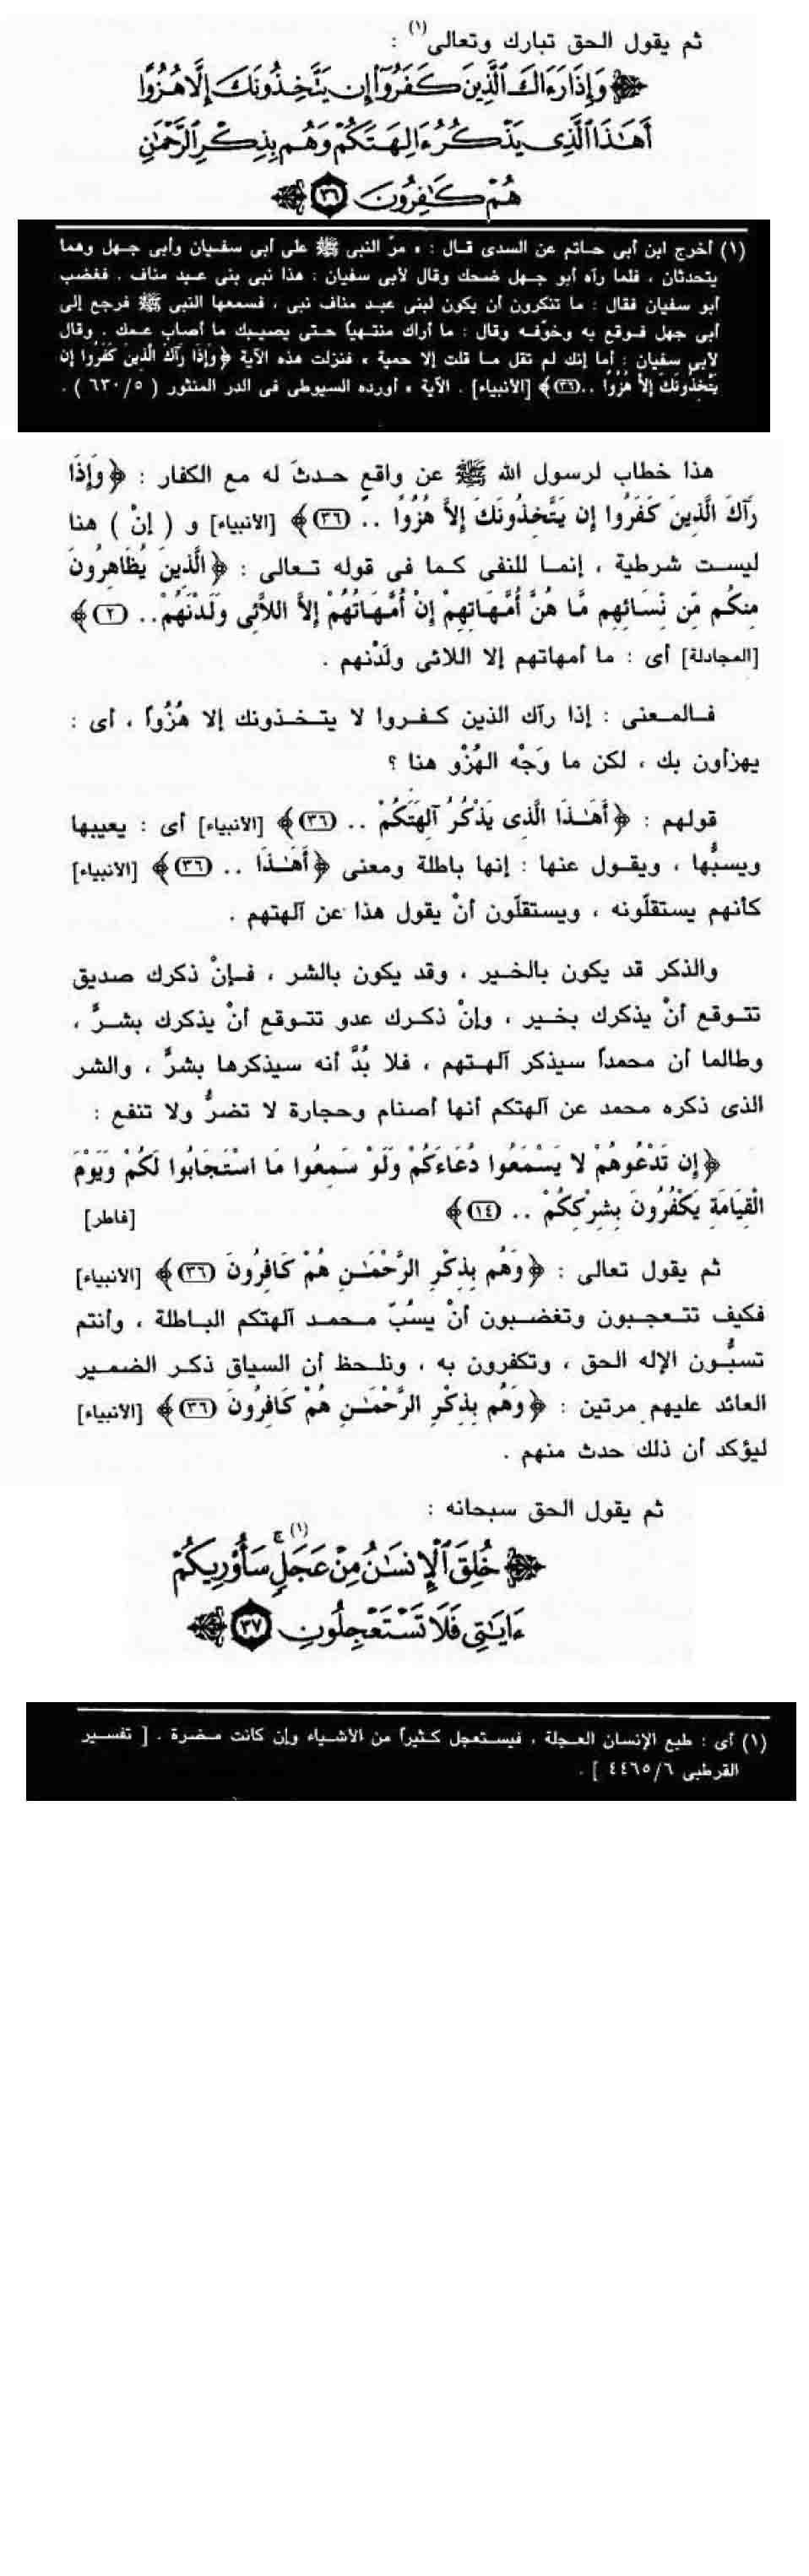 ثم يقول الحق تبارك وتعالى(١) :
﴿ وَإِذَا رَءَاكَ ٱلَّذِينَ كَفَرُوٓا۟ إِن يَتَّخِذُونَكَ إِلَّا هُزُوًا
أَهَـٰذَا ٱلَّذِى يَذْكُرُ ءَالِهَتَكُمْ وَهُم بِذِكْرِ ٱلرَّحْمَـٰنِ
هُمْ كَـٰفِرُونَ ٣٦ ﴾
(١) أخرج ابن أبى حاتم عن السدى قال : « مرّ النبى ﷺ على أبى سفيان وأبى جهل وهما
يتحدثان ، فلما رآه أبو جهل ضحك وقال لأبى سفيان : هذا نبى بنى عبد مناف . فغضب
أبو سفيان فقال : ما تنكرون أن يكون لبنى عبد مناف نبى ، فسمعها النبى ﷺ فرجع إلى
أبى جهل فوقع به وخوّفه وقال : ما أراك منتهياً حتى يصيبك ما أصاب عمك . وقال
لأبى سفيان : أما إنك لم تقل ما قلت إلا حمية » فنزلت هذه الآية ﴿ وَإِذَا رَآكَ الَّذِينَ كَفَرُوا إِن
يَتَّخِذُونَكَ إِلاَّ هُزُوا .. (٣٦) ﴾ [الأنبياء] . الآية » أورده السيوطى فى الدر المنثور ( ٥/ ٦٣٠ ) .
هذا خطاب لرسول الله ﷺ عن واقعٍ حدثَ له مع الكفار : ﴿ وَإِذَا
رَآكَ الَّذِينَ كَفَرُوا إِن يَتَّخِذُونَكَ إِلاَّ هُزُوًا .. (٣٦) ﴾ [الأنبياء] و ( إنْ ) هنا
ليست شرطية ، إنما للنفى كما فى قوله تعالى : ﴿ الَّذِينَ يُظَاهِرُونَ
مِنكُم مِّن نِّسَائِهِم مَّا هُنَّ أُمَّهَاتِهِمْ إِنْ أُمَّهَاتُهُمْ إِلاَّ اللاَّئِى وَلَدْنَهُمْ.. (٢) ﴾
[المجادلة] أى : ما أمهاتهم إلا اللائى ولَدْنهم .
فالمعنى : إذا رآك الذين كفروا لا يتخذونك إلا هُزُواً ، أى :
يهزأون بك ، لكن ما وَجْه الهُزْو هنا ؟
قولهم : ﴿ أَهَـٰذَا الَّذِى يَذْكُرُ آلِهَتَكُمْ .. (٣٦) ﴾ [الأنبياء] أى : يعيبها
ويسبُّها ، ويقول عنها : إنها باطلة ومعنى ﴿ أَهَـٰذَا .. (٣٦) ﴾ [الأنبياء]
كأنهم يستقلّونه ، ويستقلّون أنْ يقول هذا عن آلهتهم .
والذكر قد يكون بالخير ، وقد يكون بالشر ، فإنْ ذكرك صديق
تتوقع أنْ يذكرك بخير ، وإنْ ذكرك عدو تتوقع أنْ يذكرك بشرٍّ ،
وطالما أن محمداً سيذكر آلهتهم ، فلا بُدَّ أنه سيذكرها بشرٍّ ، والشر
الذى ذكره محمد عن آلهتكم أنها أصنام وحجارة لا تضرُّ ولا تنفع :
﴿ إِن تَدْعُوهُمْ لا يَسْمَعُوا دُعَاءَكُمْ وَلَوْ سَمِعُوا مَا اسْتَجَابُوا لَكُمْ وَيَوْمَ
الْقِيَامَةِ يَكْفُرُونَ بِشِرْكِكُمْ .. (١٤) ﴾ [فاطر]
ثم يقول تعالى : ﴿ وَهُم بِذِكْرِ الرَّحْمَـٰنِ هُمْ كَافِرُونَ (٣٦) ﴾ [الأنبياء]
فكيف تتعجبون وتغضبون أنْ يسُبّ محمد آلهتكم الباطلة ، وأنتم
تسبُّون الإله الحق ، وتكفرون به ، ونلحظ أن السياق ذكر الضمير
العائد عليهم مرتين : ﴿ وَهُم بِذِكْرِ الرَّحْمَـٰنِ هُمْ كَافِرُونَ (٣٦) ﴾ [الأنبياء]
ليؤكد أن ذلك حدث منهم .
ثم يقول الحق سبحانه :
﴿ خُلِقَ ٱلْإِنسَـٰنُ مِنْ عَجَلٍ(١) ۚ سَأُو۟رِيكُمْ
ءَايَـٰتِى فَلَا تَسْتَعْجِلُونِ ٣٧ ﴾
(١) أى : طبع الإنسان العجلة ، فيستعجل كثيراً من الأشياء وإن كانت مضرة . [ تفسير
القرطبى ٦/ ٤٤٦٥ ] .